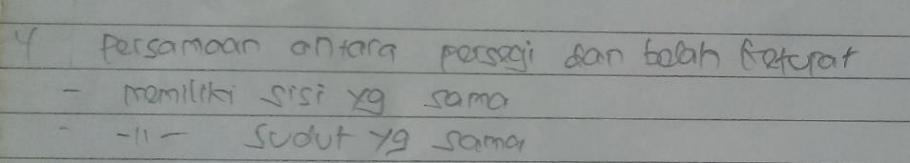 4 Persamaan antara persegi dan belah ketupat
- memiliki sisi yg sama
- -11- sudut yg sama